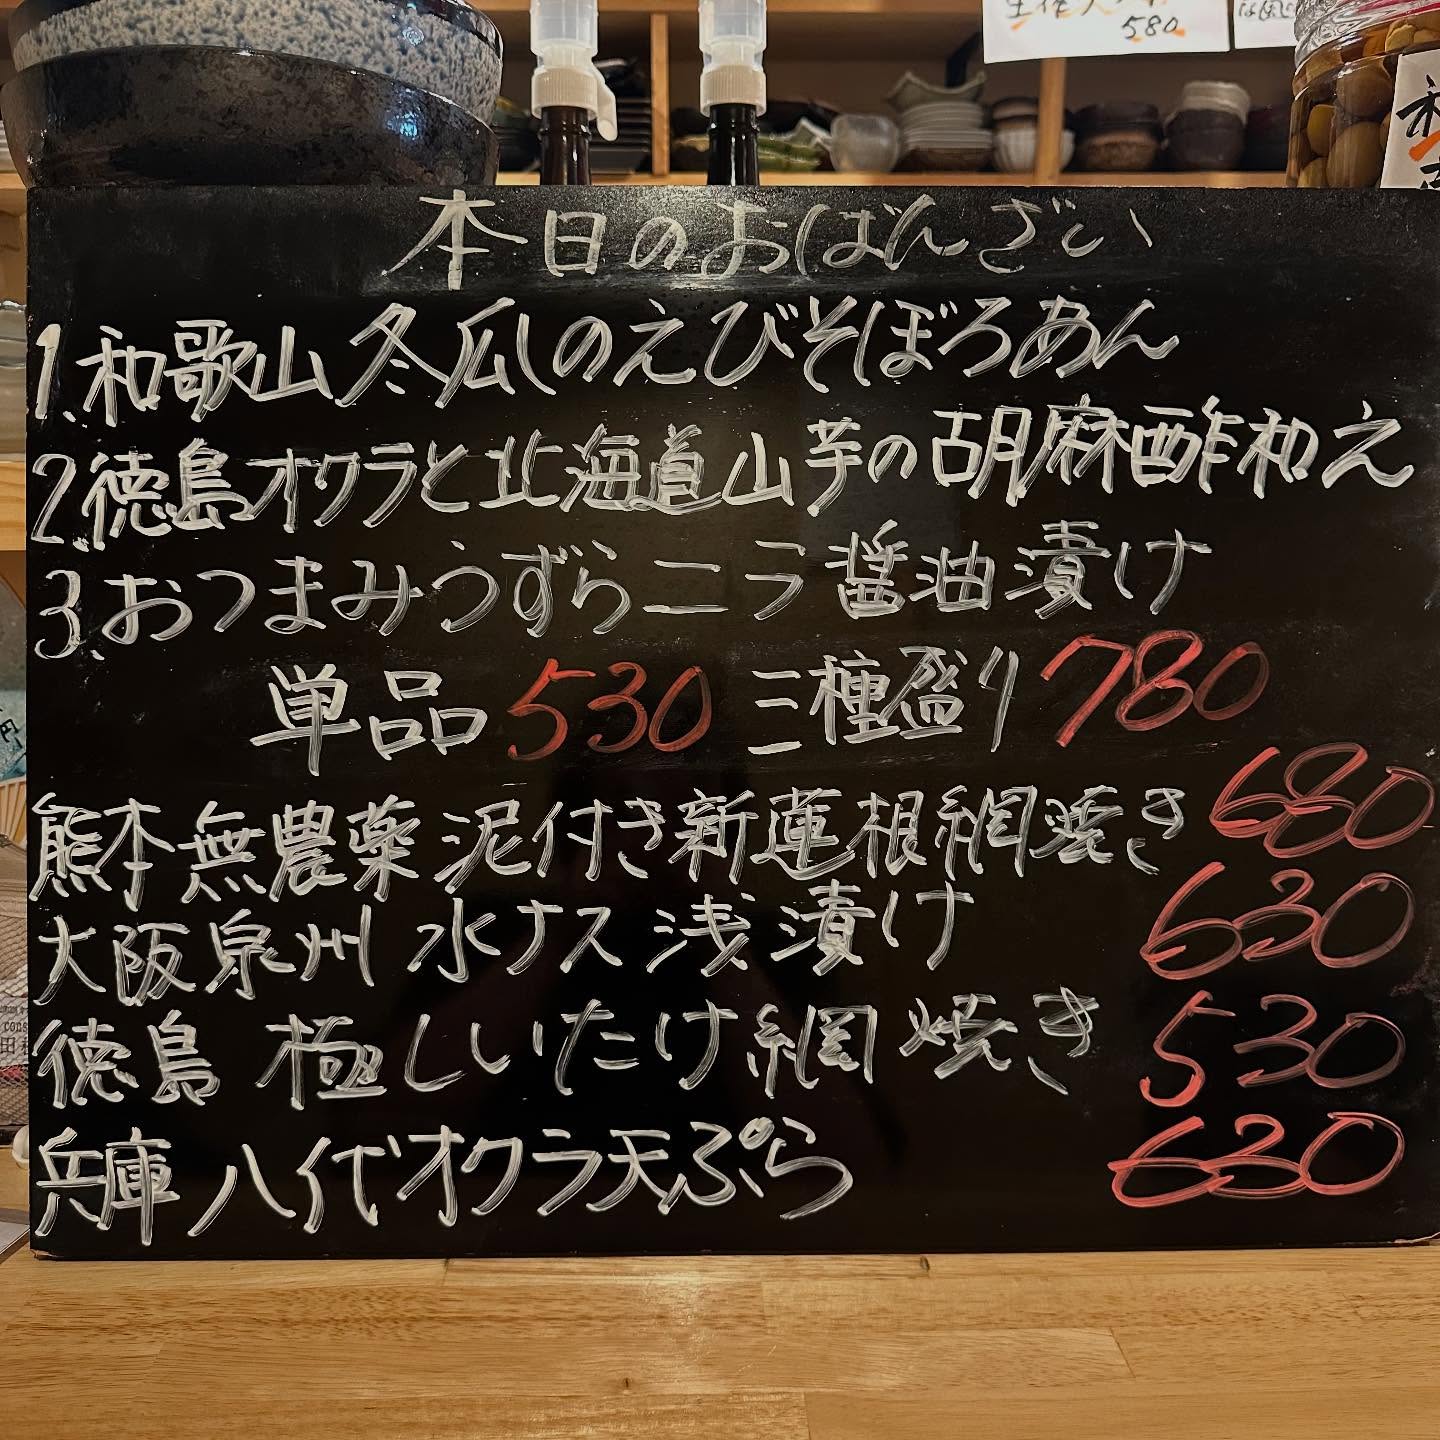 580
本日のおばんざい
1.和歌山冬瓜のえびそぼろあん
2.徳島オクラと北海道山芋の胡麻酢和え
3.おつまみうずらニラ醤油漬け
単品530 三種盛り780
熊本無農薬泥付き新蓮根網焼き 680
大阪泉州 水ナス 浅漬け 630
徳島 極しいたけ網焼き 530
兵庫 八代オクラ天ぷら 630